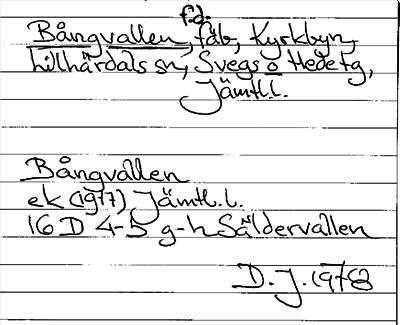 f.d.
Bångvallen, fäb, Kyrkbyn,
Lillhärdals sn, Svegs o Hede tg,
Jämtl.l.
Bångvallen
ek (1977) Jämtl.l.
16 D 4-5 g-h Säldervallen
D.J. 1978